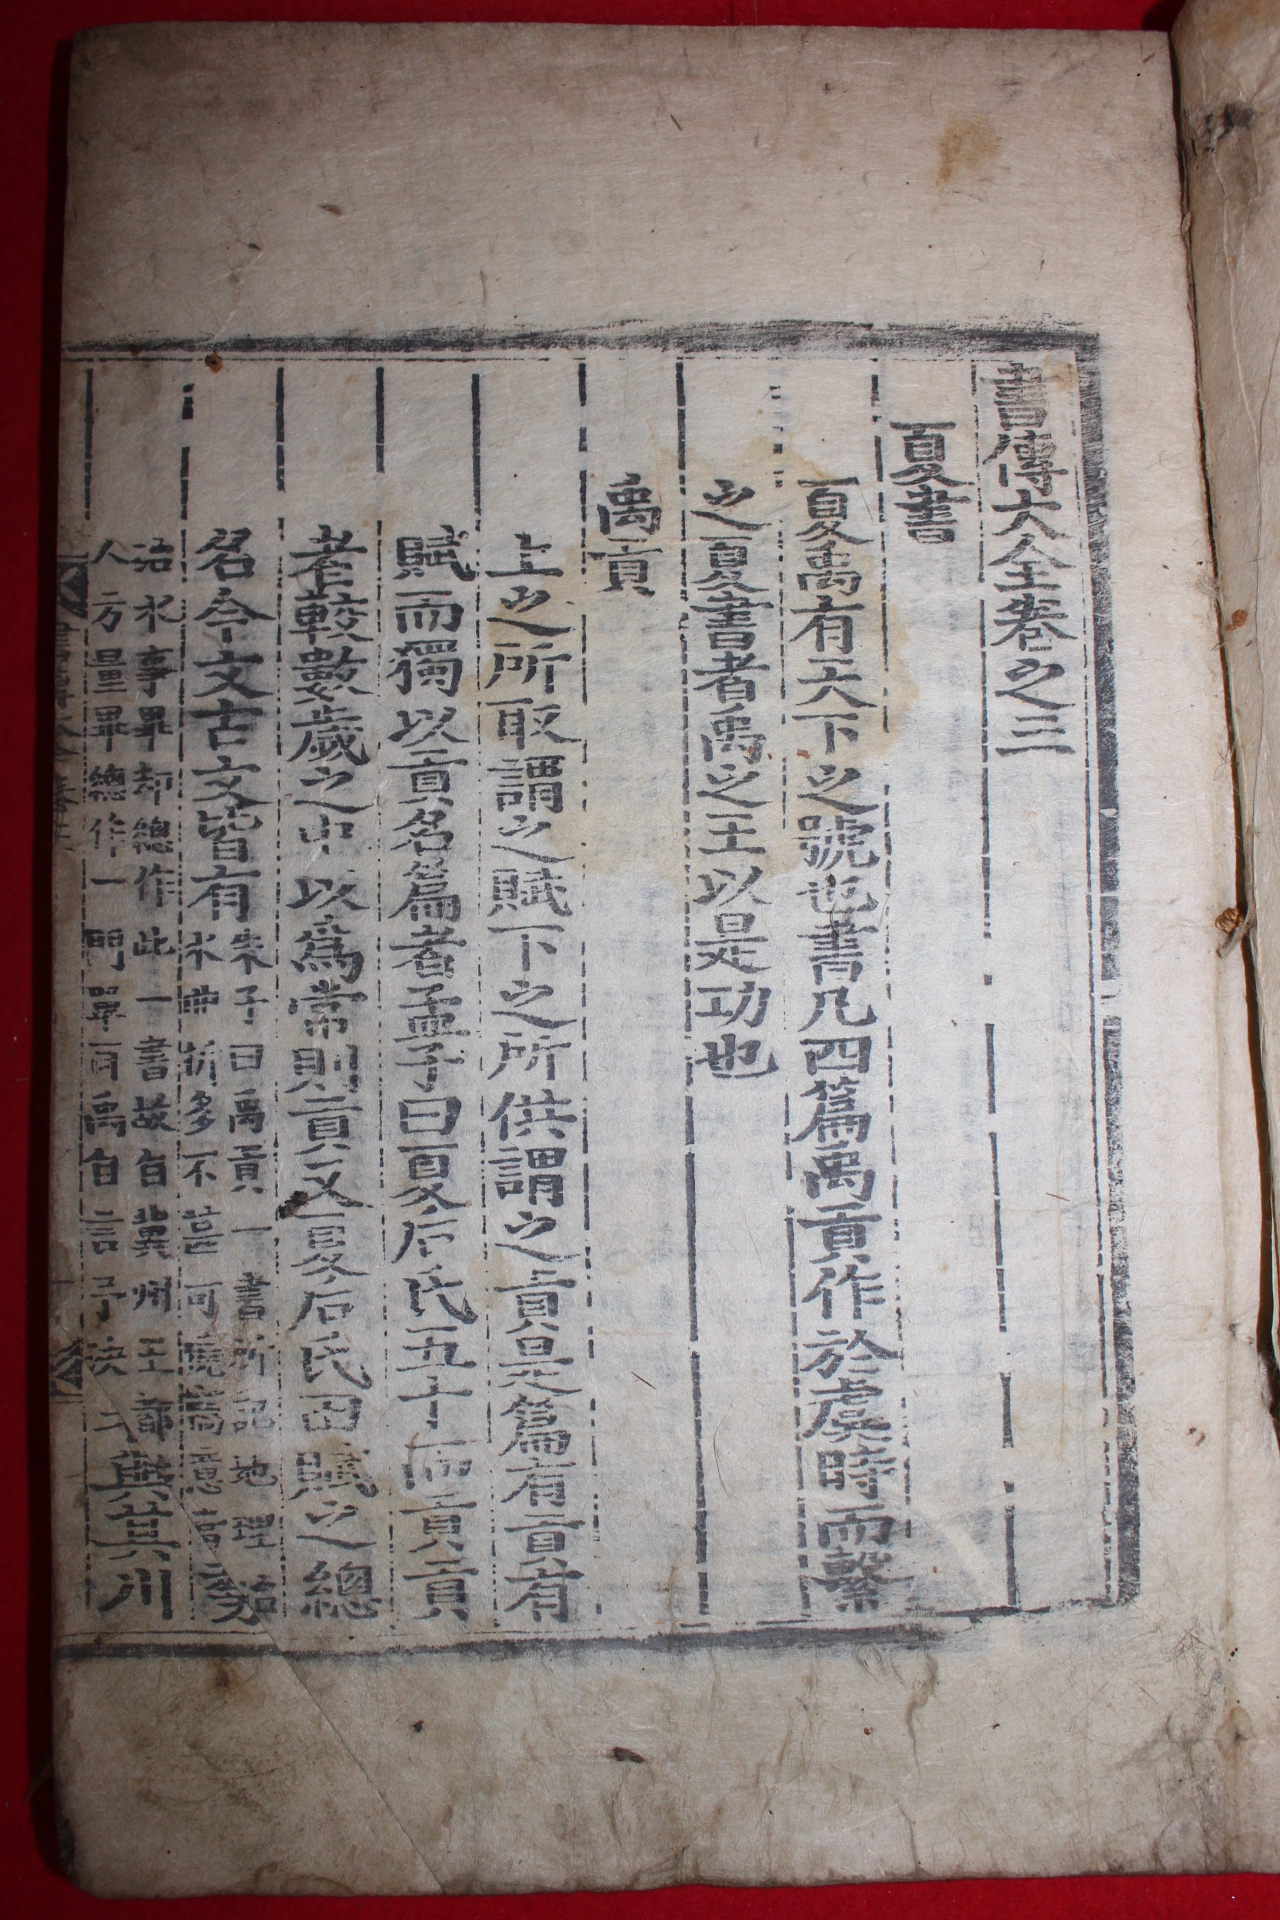 書傳大全卷之三
夏書
夏禹有天下之號也書凡四篇禹貢作於虞時而繫
之夏書者禹之王以是功也
禹貢
上之所取謂之賦下之所供謂之貢是篇有貢有
賦而獨以貢名篇者孟子曰夏后氏五十而貢貢
者較數歲之中以爲常則貢又夏后氏田賦之總
名今文古文皆有
朱子曰禹貢一書所記地理治
水曲折多不甚可曉竊意當
治水事畢却總作此一書故自冀州王都
人方量畢總作一門單耳禹自言予決